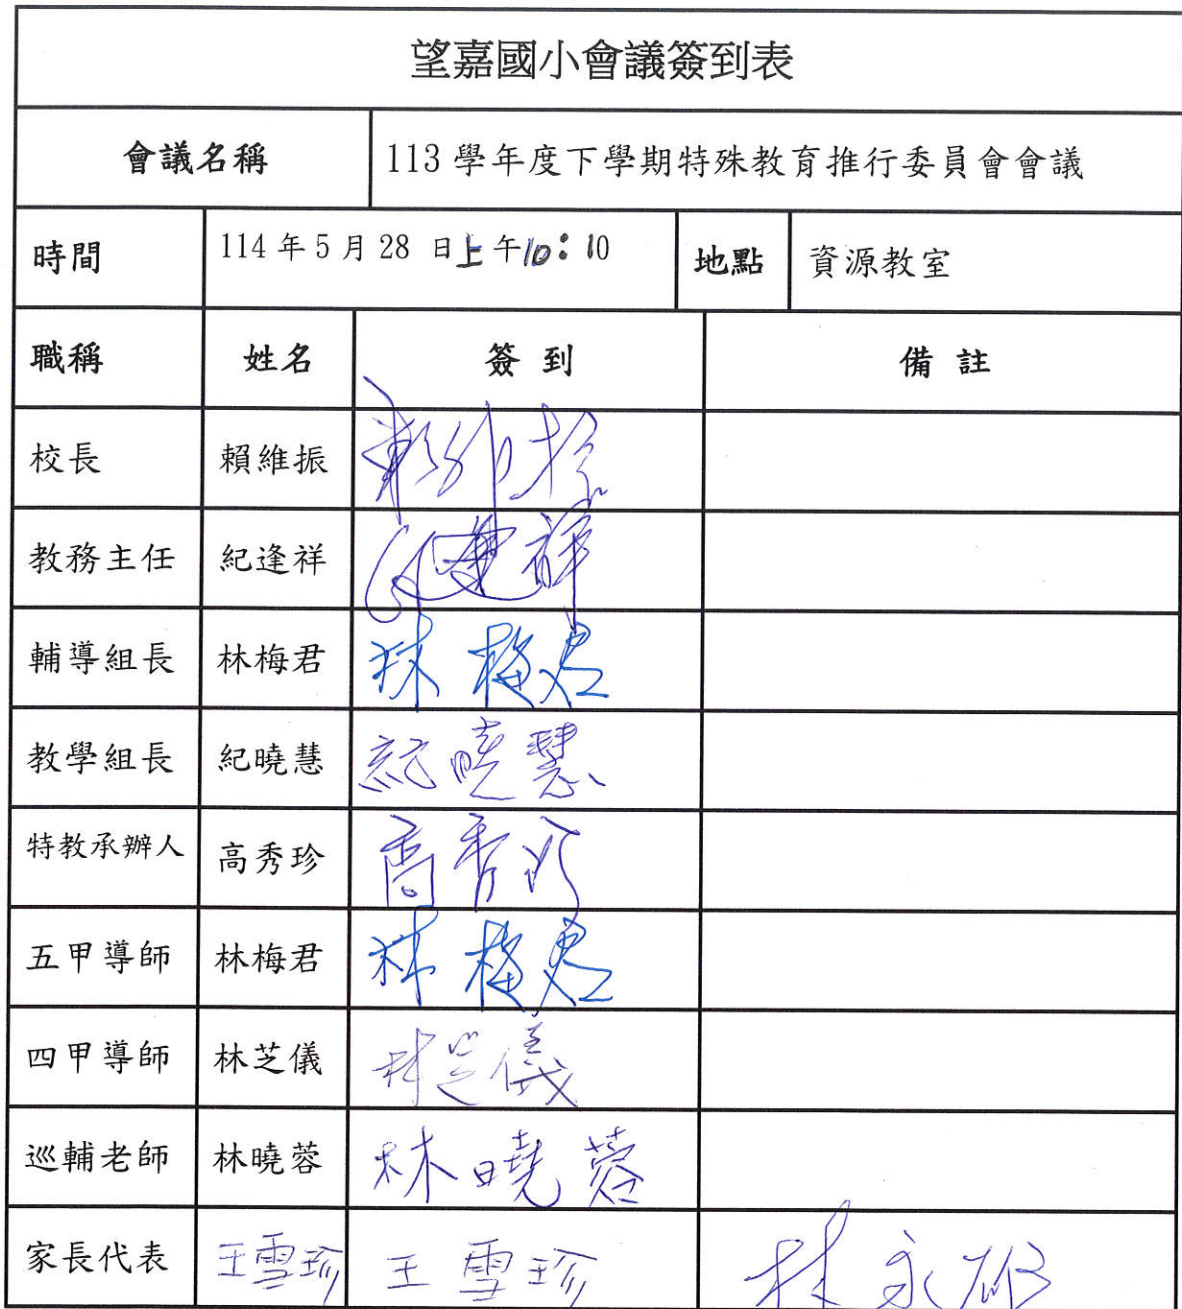 望嘉國小會議簽到表
會議名稱 113 學年度下學期特殊教育推行委員會會議
時間 114 年 5 月 28 日上午10:10 地點 資源教室
職稱 姓名 簽到 備註
校長 賴維振 賴維振
教務主任 紀逢祥 紀逢祥
輔導組長 林梅君 林梅君
教學組長 紀曉慧 紀曉慧
特教承辦人 高秀珍 高秀珍
五甲導師 林梅君 林梅君
四甲導師 林芝儀 林芝儀
巡輔老師 林曉蓉 林曉蓉
家長代表 王雪珍 王雪珍 林永